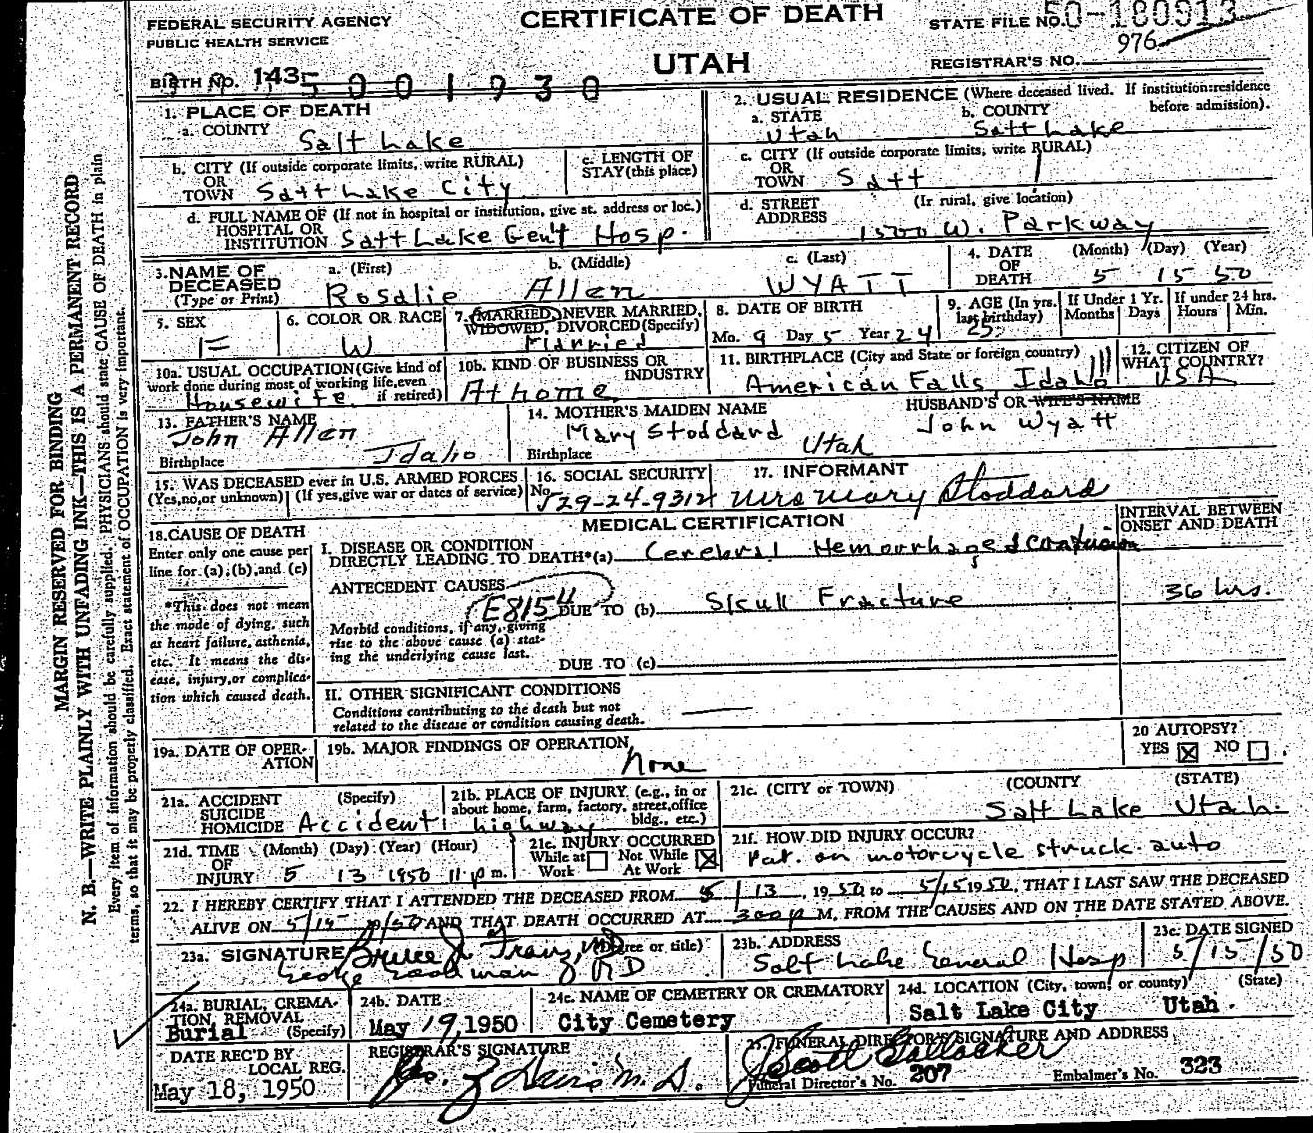 FEDERAL SECURITY AGENCY
PUBLIC HEALTH SERVICE
CERTIFICATE OF DEATH
UTAH
STATE FILE NO. 50-180913
976
REGISTRAR'S NO.
BIRTH NO. 143-5001930
1. PLACE OF DEATH
a. COUNTY
Salt Lake
2. USUAL RESIDENCE (Where deceased lived. If institution:residence before admission).
a. STATE
Utah
b. COUNTY
Salt Lake
b. CITY (If outside corporate limits, write RURAL)
OR
TOWN Salt Lake City
c. LENGTH OF
STAY (this place)
c. CITY (If outside corporate limits, write RURAL)
OR
TOWN Salt
d. FULL NAME OF (If not in hospital or institution, give st. address or loc.)
HOSPITAL OR
INSTITUTION Salt Lake Gen'l Hosp.
d. STREET (If rural, give location)
ADDRESS
W. Parkway
3. NAME OF
DECEASED
(Type or Print)
a. (First)
Rosalie
b. (Middle)
Allen
c. (Last)
WYATT
4. DATE
OF
DEATH
(Month) (Day) (Year)
5 15 50
5. SEX
F
6. COLOR OR RACE
W
7. MARRIED, NEVER MARRIED,
WIDOWED, DIVORCED (Specify)
Married
8. DATE OF BIRTH
Mo. 9 Day 5 Year 24
9. AGE (In yrs.
last birthday)
25
If Under 1 Yr.
Months Days
If under 24 hrs.
Hours Min.
10a. USUAL OCCUPATION (Give kind of
work done during most of working life, even
if retired)
Housewife
10b. KIND OF BUSINESS OR
INDUSTRY
At home
11. BIRTHPLACE (City and State or foreign country)
American Falls Idaho
12. CITIZEN OF
WHAT COUNTRY?
USA
13. FATHER'S NAME
John Allen
Birthplace Idaho
14. MOTHER'S MAIDEN NAME
Mary Stoddard
Birthplace Utah
HUSBAND'S OR WIFE'S NAME
John Wyatt
15. WAS DECEASED ever in U.S. ARMED FORCES
(Yes, no, or unknown) (If yes, give war or dates of service)
16. SOCIAL SECURITY
No. 529-24-9312
17. INFORMANT
Mrs Mary Stoddard
MEDICAL CERTIFICATION
INTERVAL BETWEEN
ONSET AND DEATH
18. CAUSE OF DEATH
Enter only one cause per
line for (a), (b), and (c)
*This does not mean
the mode of dying, such
as heart failure, asthenia,
etc. It means the dis-
ease, injury, or complica-
tion which caused death.
I. DISEASE OR CONDITION
DIRECTLY LEADING TO DEATH*(a) Cerebral Hemorrhage & Contusion
ANTECEDENT CAUSES
E815
DUE TO (b) Skull Fracture 36 hrs.
Morbid conditions, if any, giving
rise to the above cause (a) stat-
ing the underlying cause last.
DUE TO (c)
II. OTHER SIGNIFICANT CONDITIONS
Conditions contributing to the death but not
related to the disease or condition causing death.
19a. DATE OF OPER-
ATION
19b. MAJOR FINDINGS OF OPERATION
None
20 AUTOPSY?
YES NO
21a. ACCIDENT (Specify)
SUICIDE
HOMICIDE Accident
21b. PLACE OF INJURY (e.g., in or
about home, farm, factory, street, office
bldg., etc.)
highway
21c. (CITY OR TOWN) (COUNTY) (STATE)
Salt Lake Utah
21d. TIME (Month) (Day) (Year) (Hour)
OF
INJURY 5 13 1950 11 p m.
21e. INJURY OCCURRED
While at Work Not While At Work
21f. HOW DID INJURY OCCUR?
Pat. on motorcycle struck auto
22. I HEREBY CERTIFY THAT I ATTENDED THE DECEASED FROM 5/13, 1950 to 5/15 1950, THAT I LAST SAW THE DECEASED
ALIVE ON 5/15 AND THAT DEATH OCCURRED AT 300 p M, FROM THE CAUSES AND ON THE DATE STATED ABOVE.
23a. SIGNATURE (Degree or title)
23b. ADDRESS
Salt Lake General Hosp
23c. DATE SIGNED
5/15/50
24a. BURIAL, CREMA-
TION REMOVAL
Burial (Specify)
24b. DATE
May 19, 1950
24c. NAME OF CEMETERY OR CREMATORY
City Cemetery
24d. LOCATION (City, town, or county) (State)
Salt Lake City Utah.
DATE REC'D BY
LOCAL REG.
May 18, 1950
REGISTRAR'S SIGNATURE
25. FUNERAL DIRECTOR'S SIGNATURE AND ADDRESS
Funeral Director's No. 207 Embalmer's No. 323
MARGIN RESERVED FOR BINDING
N. B.—WRITE PLAINLY WITH UNFADING INK—THIS IS A PERMANENT RECORD
Every item of information should be carefully supplied. PHYSICIANS should state CAUSE OF DEATH in plain
terms, so that it may be properly classified. Exact statement of OCCUPATION is very important.